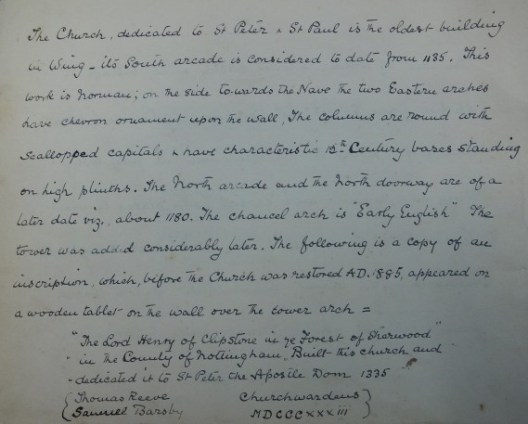 The Church, dedicated to St Peter & St Paul is the oldest building
in Wing – its South arcade is considered to date from 1135. This
work is Norman; on the side towards the Nave the two Eastern arches
have chevron ornament upon the wall, The columns are round with
scallopped capitals & have characteristic 12th Century bases standing
on high plinths. The North arcade and the North doorway are of a
later date viz, about 1180. The chancel arch is "Early English" The
tower was added considerably later. The following is a copy of an
inscription, which, before the Church was restored A.D. 1885, appeared on
a wooden tablet on the wall over the tower arch =
"The Lord Henry of Clipstone in ye Forest of Sherwood"
"in the County of Nottingham, Built this church and
"dedicated it to St Peter the Apostle Dom 1335
(Thomas Reeve Churchwardens)
(Samuel Barsby MDCCCXXXIII)